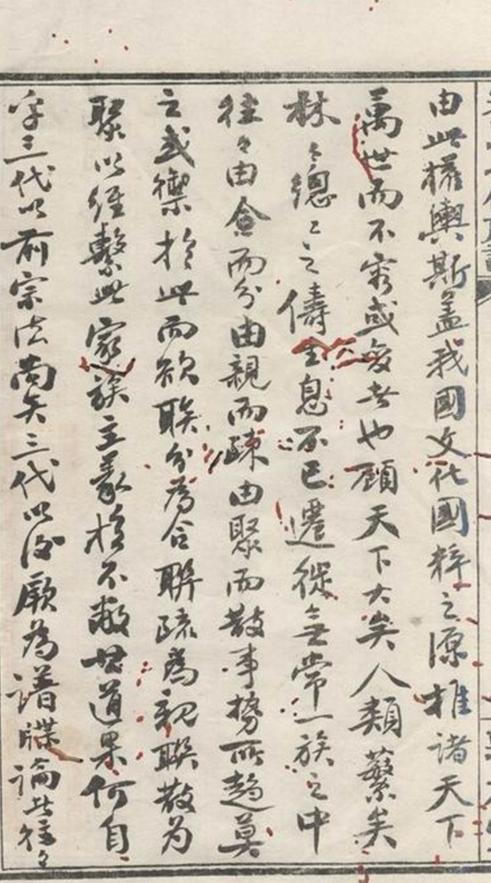 由此權輿斯蓋我國文化國粹之源推諸天下
萬世而不窮或変者也顧天下大矣人類蘩矣
林々總々之儔生息不已遷徙無常一族之中
往々由合而分由親而疎由聚而散事勢所趨莫
之或禦於此而欲聯分為合聯疏為親聯散為
聚以維繫此家族主義於不敝世道果何自
乎三代以前宗法尚矣三代以後厥為譜牒論此徃々